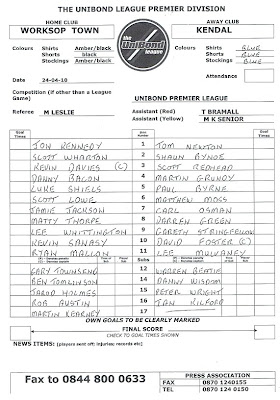 THE UNIBOND LEAGUE PREMIER DIVISION
HOME CLUB
AWAY CLUB
WORKSOP TOWN
KENDAL
the UniBond league
Colours Shirts Amber/black
Shorts black
Stockings Amber/black
Colours Shirts BLUE
Shorts BLUE
Stockings BLUE
Date 24-04-10
Attendance
Competition (if other than a League Game) UNIBOND PREMIER LEAGUE
Referee M LESLIE
Assistant (Red) T BRAMALL
Assistant (Yellow) M K SENIOR
Goal Times
Goal Times
JON KENNEDY 1 TOM NEWTON
SCOTT WHARTON 2 SHAUN BYNOE
KEVIN DAVIES (C) 3 SCOTT REDHEAD
DANNY BACON 4 MARTIN GRUNDY
LUKE SHIELS 5 PAUL BYRNE
SCOTT LOWE 6 MATTHEW MOSS
JAMIE JACKSON 7 CARL OSMAN
MATTY THORPE 8 DARREN GREEN
LEE WHITTINGTON 9 GARETH STRINGFELLOW
KEVIN SANASY 10 DAVID FOSTER (C)
RYAN MALLON 11 LEE MULVANEY
Subs
GARY TOWNSEND 12 WARREN BEATIE
BEN TOMLINSON 14 DANNY WISDOM
JAROD HOLMES 15 PETER WRIGHT
ROB AUSTIN 16 IAN KILFORD
MARTIN KEARNEY 17
OWN GOALS TO BE CLEARLY MARKED
FINAL SCORE
CHECK TO GOAL TIMES SHOWN
NEWS ITEMS: (players sent off: injuries; records etc)
Fax to 0844 800 0633
PRESS ASSOCIATION
FAX 0870 1240155
TEL 0870 124 0150